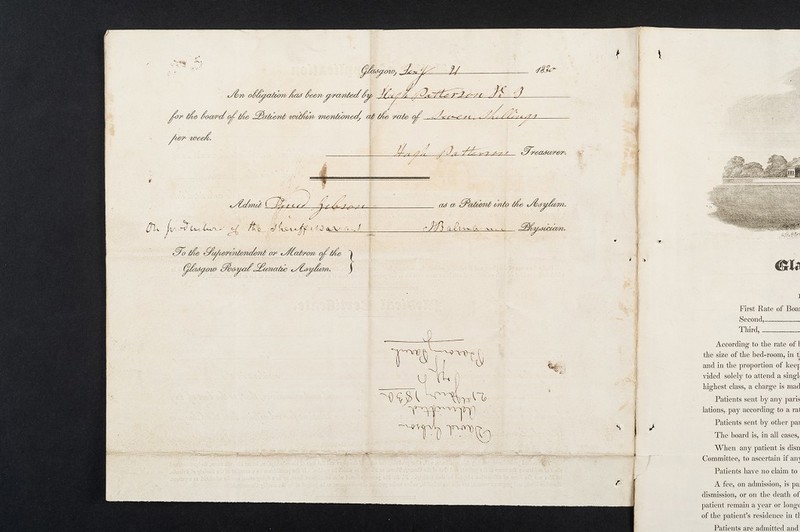 Glasgow, Jany 21 1830
An obligation has been granted by Hugh Patterson
for the board of the Patient within mentioned, at the rate of Seven Shillings
per week.
Hugh Patterson Treasurer.
Admit David Gibson as a Patient into the Asylum.
On production of the Sheriffs warrant Balmanno Physician.
To the Superintendent or Matron of the
Glasgow Royal Lunatic Asylum.
David Gibson
admitted
21 Jany 1830
Barony Parish
Gla
First Rate of Boa
Second,
Third,
According to the rate of
the size of the bed-room, in t
and in the proportion of keep
vided solely to attend a singl
highest class, a charge is mad
Patients sent by any paris
lations, pay according to a ra
Patients sent by other pa
The board is, in all cases,
When any patient is dism
Committee, to ascertain if any
Patients have no claim to
A fee, on admission, is pa
dismission, or on the death of
patient remain a year or longe
of the patient's residence in t
Patients are admitted and